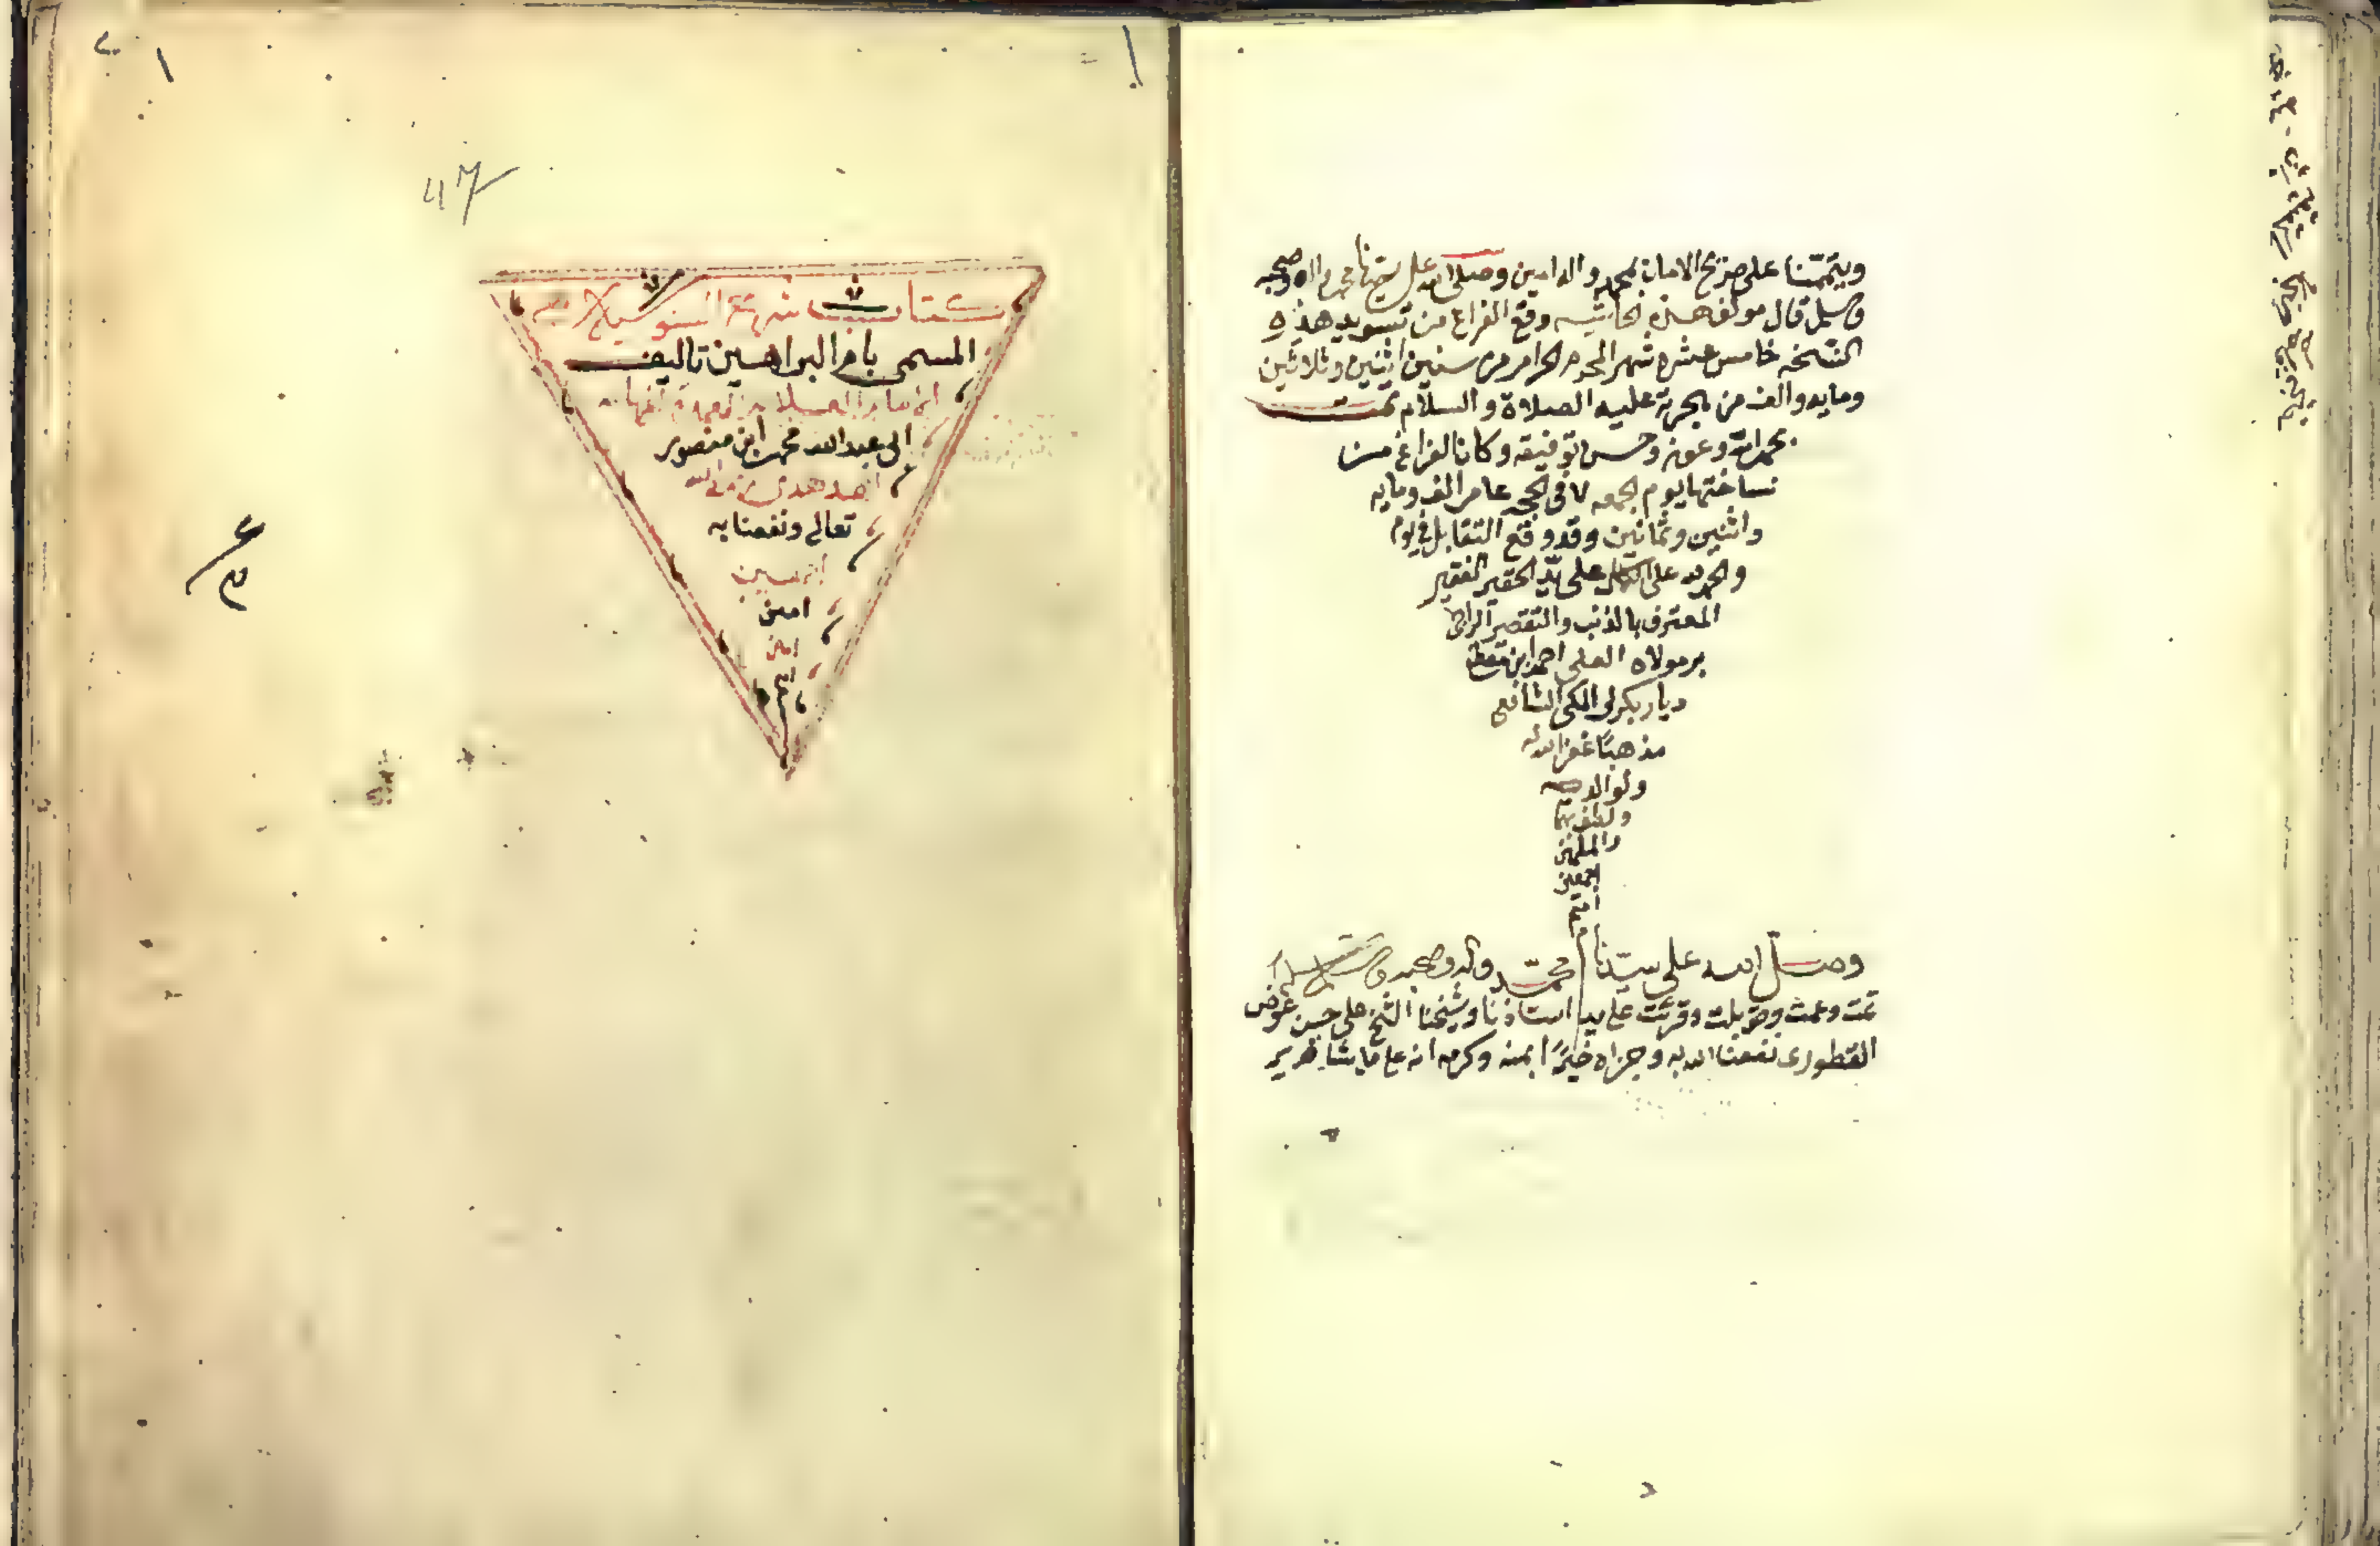 ويتمتنا على صريح الامان بمحمد واله امين وصلى الله على سيدنا محمد واله وصحبه
وسلم قال مولف هذه الحاشيه وقع الفراغ من تسويد هذه
النسخه خامس عشره شهر المحرم الحرام من سنين اثنين وثلاثين
ومايه والف من الهجرة عليه الصلاة والسلام تمت
بحمد الله وعونه وحسن توفيقه وكان الفراغ من
نساختها يوم الجمعه ٧ في الحجه عام الف ومايه
واثنين وثمانين وقد وقع التقابل في يوم
والحمد لله على الكمال على يد الحقير الفقير
المعترف بالذنب والتقصير الراجي
بر مولاه العلي احمد ابن
ديار بكرلي المكي الشافعي
مذهبا غفر الله له
ولوالديه
ولطف بهما
والمسلمين
اجمعين
امين
م
وصلى الله على سيدنا محمد واله وصحبه وسلم
تمت وعمت وقوبلت وقرئت على يد استاذنا وشيخنا الشيخ علي حسن عوض
القطوري نفعنا الله به وجزاه خيرًا بمنه وكرمه انه على ما يشا قدير
٤٦
كتاب السنوسيه
المسمى بام البراهين تاليف
الامام العلامه
ابي عبد الله محمد ابن منصور
الله
تعالى ونفعنا به
امين
امين
امين